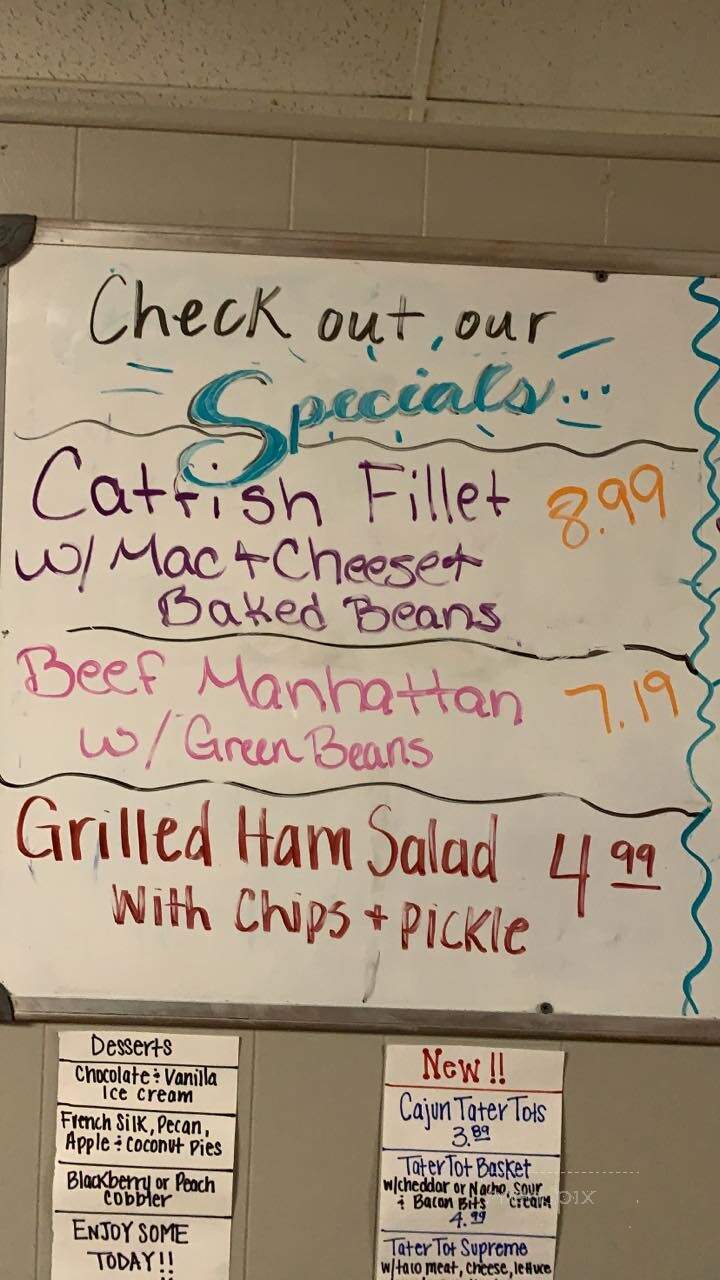 Check out our
Specials...
Catfish Fillet 8.99
w/ Mac + Cheese +
Baked Beans
Beef Manhattan 7.19
w/ Green Beans
Grilled Ham Salad 4 99
With Chips + Pickle
Desserts
Chocolate & Vanilla
Ice cream
French Silk, Pecan,
Apple & Coconut Pies
Blackberry or Peach
Cobbler
ENJOY SOME
TODAY!!
New!!
Cajun Tater Tots
3.89
Tater Tot Basket
w/cheddar or Nacho, Sour
& Bacon Bits Cream
4.99
Tater Tot Supreme
w/taco meat, cheese, lettuce